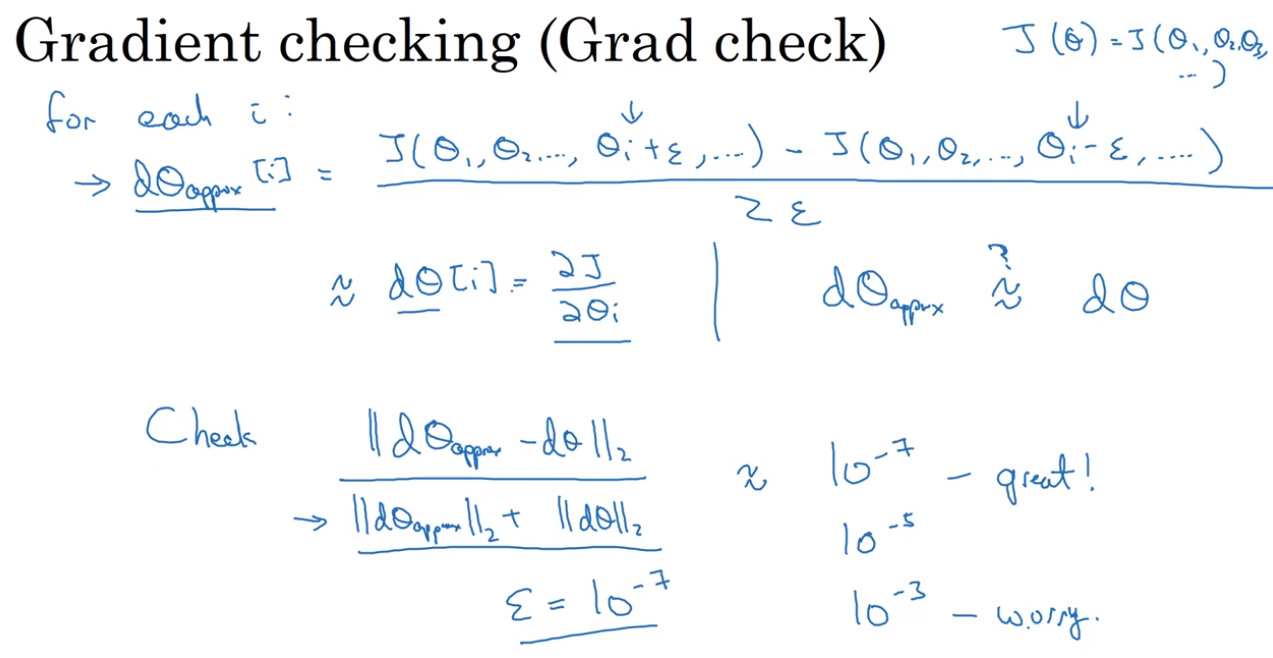 Gradient checking (Grad check)
J(θ) = J(θ₁, θ₂, θ₃, ...)
for each i:
→ dθapprox[i] = (J(θ₁, θ₂, ..., θᵢ+ε, ...) - J(θ₁, θ₂, ..., θᵢ-ε, ...)) / 2ε
≈ dθ[i] = ∂J/∂θᵢ | dθapprox ≈? dθ
Check ‖dθapprox - dθ‖₂ / (‖dθapprox‖₂ + ‖dθ‖₂) ≈ 10⁻⁷ - great!
10⁻⁵
ε = 10⁻⁷
10⁻³ - worry.